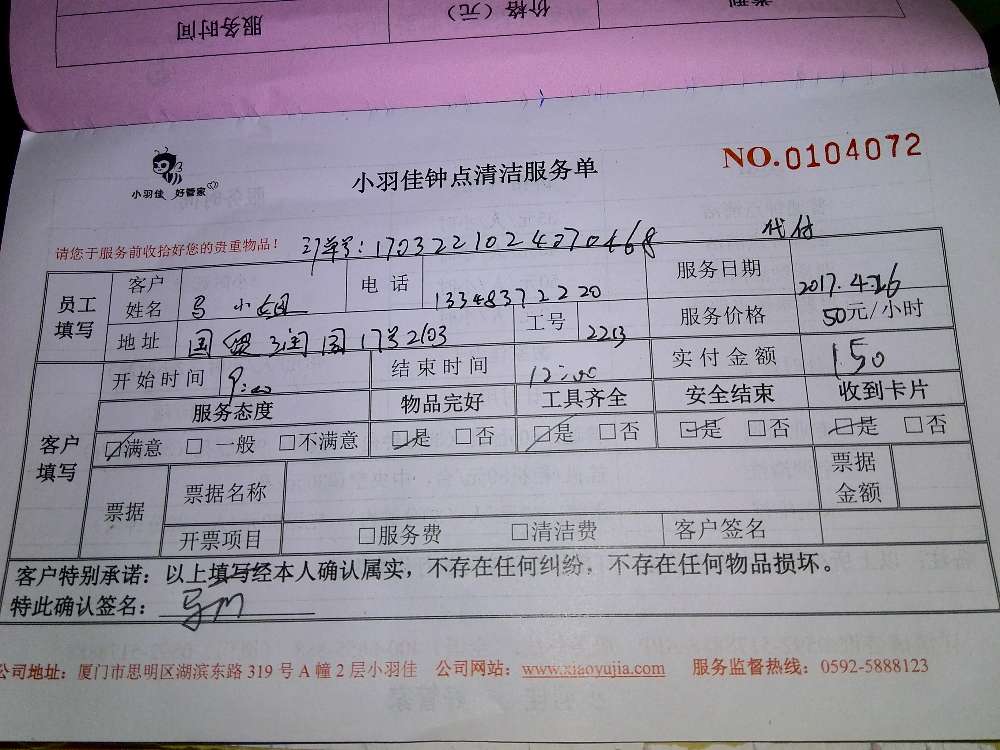 服务时间 价格（元） 类别
NO.0104072
小羽佳 好管家
小羽佳钟点清洁服务单
请您于服务前收拾好您的贵重物品！ 订单号：1703221024270468 代付
员工填写 客户姓名 马小姐 电话 13348372220 服务日期 2017.4.26
地址 国贸润园17号2103 工号 2213 服务价格 50元/小时
客户填写 开始时间 9:00 结束时间 12:00 实付金额 150
服务态度 物品完好 工具齐全 安全结束 收到卡片
☑满意 □一般 □不满意 ☑是 □否 ☑是 □否 ☑是 □否 ☑是 □否
票据 票据名称 票据金额
开票项目 □服务费 □清洁费 客户签名
客户特别承诺：以上填写经本人确认属实，不存在任何纠纷，不存在任何物品损坏。
特此确认签名：
公司地址：厦门市思明区湖滨东路319号A幢2层小羽佳 公司网站：www.xiaoyujia.com 服务监督热线：0592-5888123